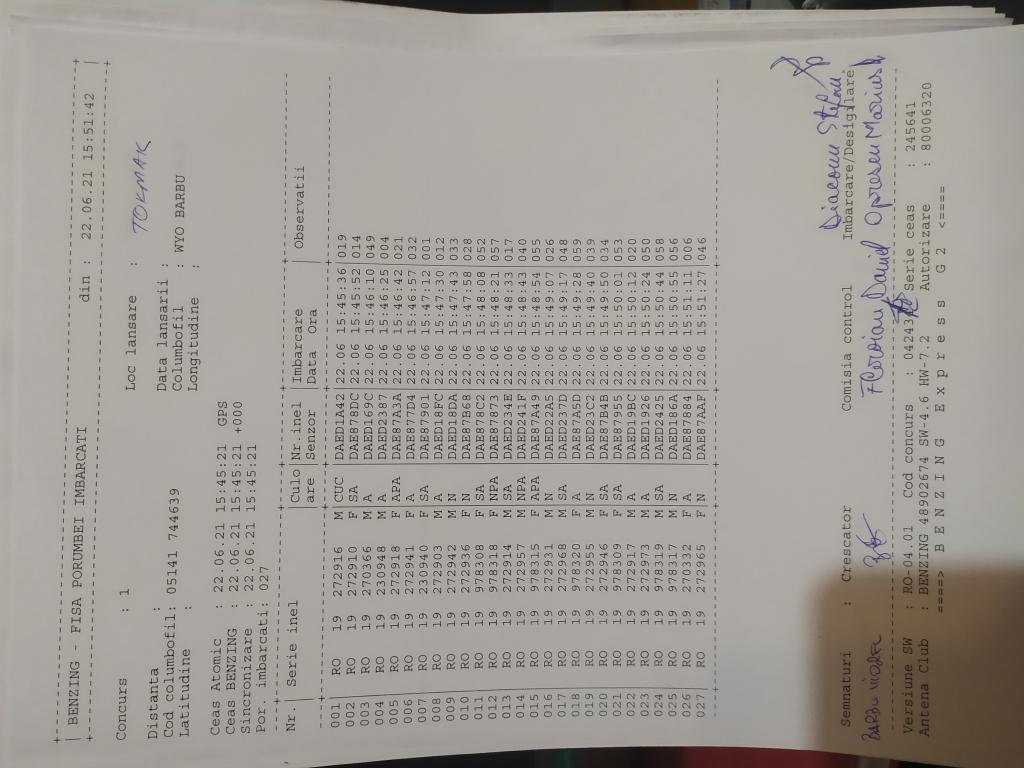 BENZING - FISA PORUMBEI IMBARCATI din : 22.06.21 15:51:42
Concurs : 1 Loc lansare : TOKMAK
Distanta : Data lansarii :
Cod columbofil: 05141 744639 Columbofil : WYO BARBU
Latitudine : Longitudine :
Ceas Atomic : 22.06.21 15:45:21 GPS
Ceas BENZING : 22.06.21 15:45:21 +000
Sincronizare : 22.06.21 15:45:21
Por. imbarcati: 027
Nr.| Serie inel |Culo|Nr.inel |Imbarcare |Observatii
|are |Senzor |Data Ora
001 RO 19 272916 M CUC DAED1A42 22.06 15:45:36 019
002 RO 19 272910 F SA DAE878DC 22.06 15:45:52 014
003 RO 19 270366 M A DAED169C 22.06 15:46:10 049
004 RO 19 230948 M A DAED2387 22.06 15:46:25 004
005 RO 19 272918 F APA DAE87A3A 22.06 15:46:42 021
006 RO 19 272941 F A DAE877D4 22.06 15:46:57 032
007 RO 19 230940 F SA DAE87901 22.06 15:47:12 001
008 RO 19 272903 M A DAED18FC 22.06 15:47:30 012
009 RO 19 272942 M N DAED18DA 22.06 15:47:43 033
010 RO 19 272936 F N DAE87B68 22.06 15:47:58 028
011 RO 19 978308 F SA DAE878C2 22.06 15:48:08 052
012 RO 19 978318 F NPA DAE87873 22.06 15:48:21 057
013 RO 19 272914 M SA DAED234E 22.06 15:48:33 017
014 RO 19 272957 M NPA DAED241F 22.06 15:48:43 040
015 RO 19 978315 F APA DAE87A49 22.06 15:48:54 055
016 RO 19 272931 M N DAED22A5 22.06 15:49:07 026
017 RO 19 272968 M SA DAED237D 22.06 15:49:17 048
018 RO 19 978320 F A DAE87A5D 22.06 15:49:28 059
019 RO 19 272955 M N DAED23C2 22.06 15:49:40 039
020 RO 19 272946 F SA DAE87B4B 22.06 15:49:50 034
021 RO 19 978309 F SA DAE87955 22.06 15:50:01 053
022 RO 19 272917 M A DAED19BC 22.06 15:50:12 020
023 RO 19 272973 M A DAED1926 22.06 15:50:24 050
024 RO 19 978319 M SA DAED2425 22.06 15:50:44 058
025 RO 19 978317 M N DAED186A 22.06 15:50:55 056
026 RO 19 270332 F A DAE87884 22.06 15:51:11 006
027 RO 19 272965 F N DAE87AAF 22.06 15:51:27 046
Semnaturi : Crescator Comisia control Imbarcare/Desigilare
Diaconu Stefan
BARBU Floroian Daniel Oprescu Marius
Versiune SW : RO-04.01 Cod concurs : 04243 Serie ceas : 245641
Antena Club : BENZING 48902674 SW-4.6 HW-7.2 Autorizare : 80006320
====> B E N Z I N G E x p r e s s G 2 <====